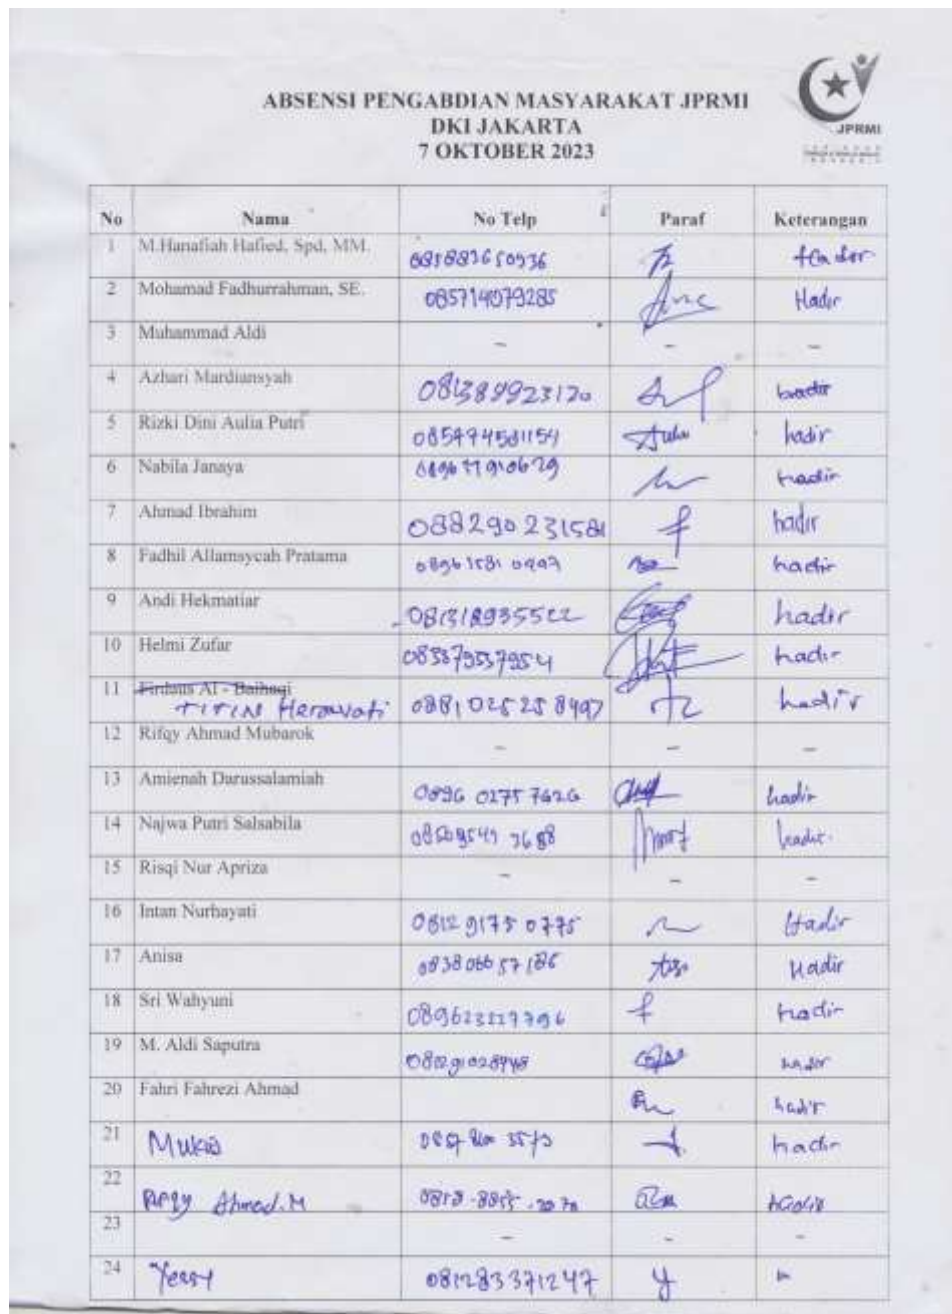 ABSENSI PENGABDIAN MASYARAKAT JPRMI
DKI JAKARTA
7 OKTOBER 2023
JPRMI
No Nama No Telp Paraf Keterangan
1 M.Hanafiah Hafied, Spd, MM.
2 Mohamad Fadhurrahman, SE. 085714079285 Hadir
3 Muhammad Aldi - - -
4 Azhari Mardiansyah 081389923120 hadir
5 Rizki Dini Aulia Putri hadir
6 Nabila Janaya hadir
7 Ahmad Ibrahim 088290231581 hadir
8 Fadhil Allamsycah Pratama hadir
9 Andi Hekmatiar 081318935522 hadir
10 Helmi Zufar hadir
11 Firdaus Al - Baihaqi
TITIN Herawati 0881025258497 hadir
12 Rifqy Ahmad Mubarok - - -
13 Amienah Darussalamiah 0896 0275 7626 hadir
14 Najwa Putri Salsabila hadir
15 Risqi Nur Apriza - - -
16 Intan Nurhayati 0812 9175 0775 Hadir
17 Anisa 083806657186 Hadir
18 Sri Wahyuni 089623227796 hadir
19 M. Aldi Saputra 081291028948 hadir
20 Fahri Fahrezi Ahmad hadir
21 hadir
22 Ahmad.M
23 - - -
24 Yessy 081283371247